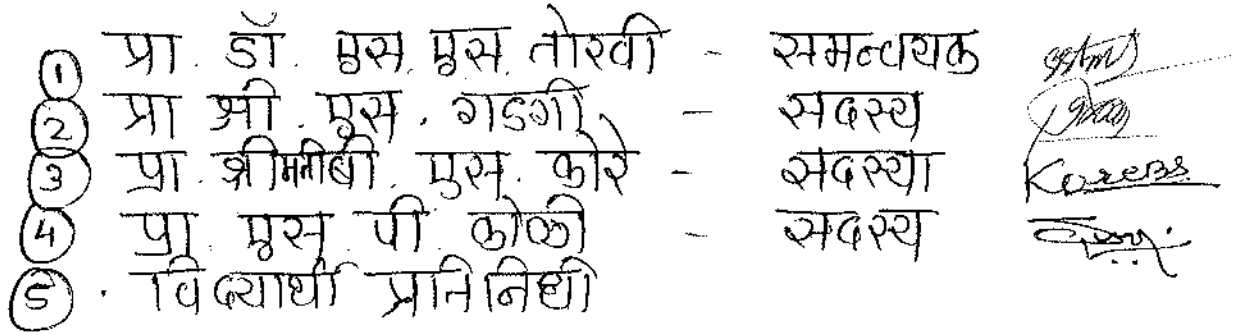 ① प्रा. डॉ. एस. एस. तोरवी - समन्वयक
② प्रा श्री. एस. गडगी - सदस्य
③ प्रा. श्रीमती बी. एस. कोरे - सदस्या Korebs
④ प्रा. एस. पी. कोळी - सदस्य
⑤ . विद्यार्थी प्रतिनिधी